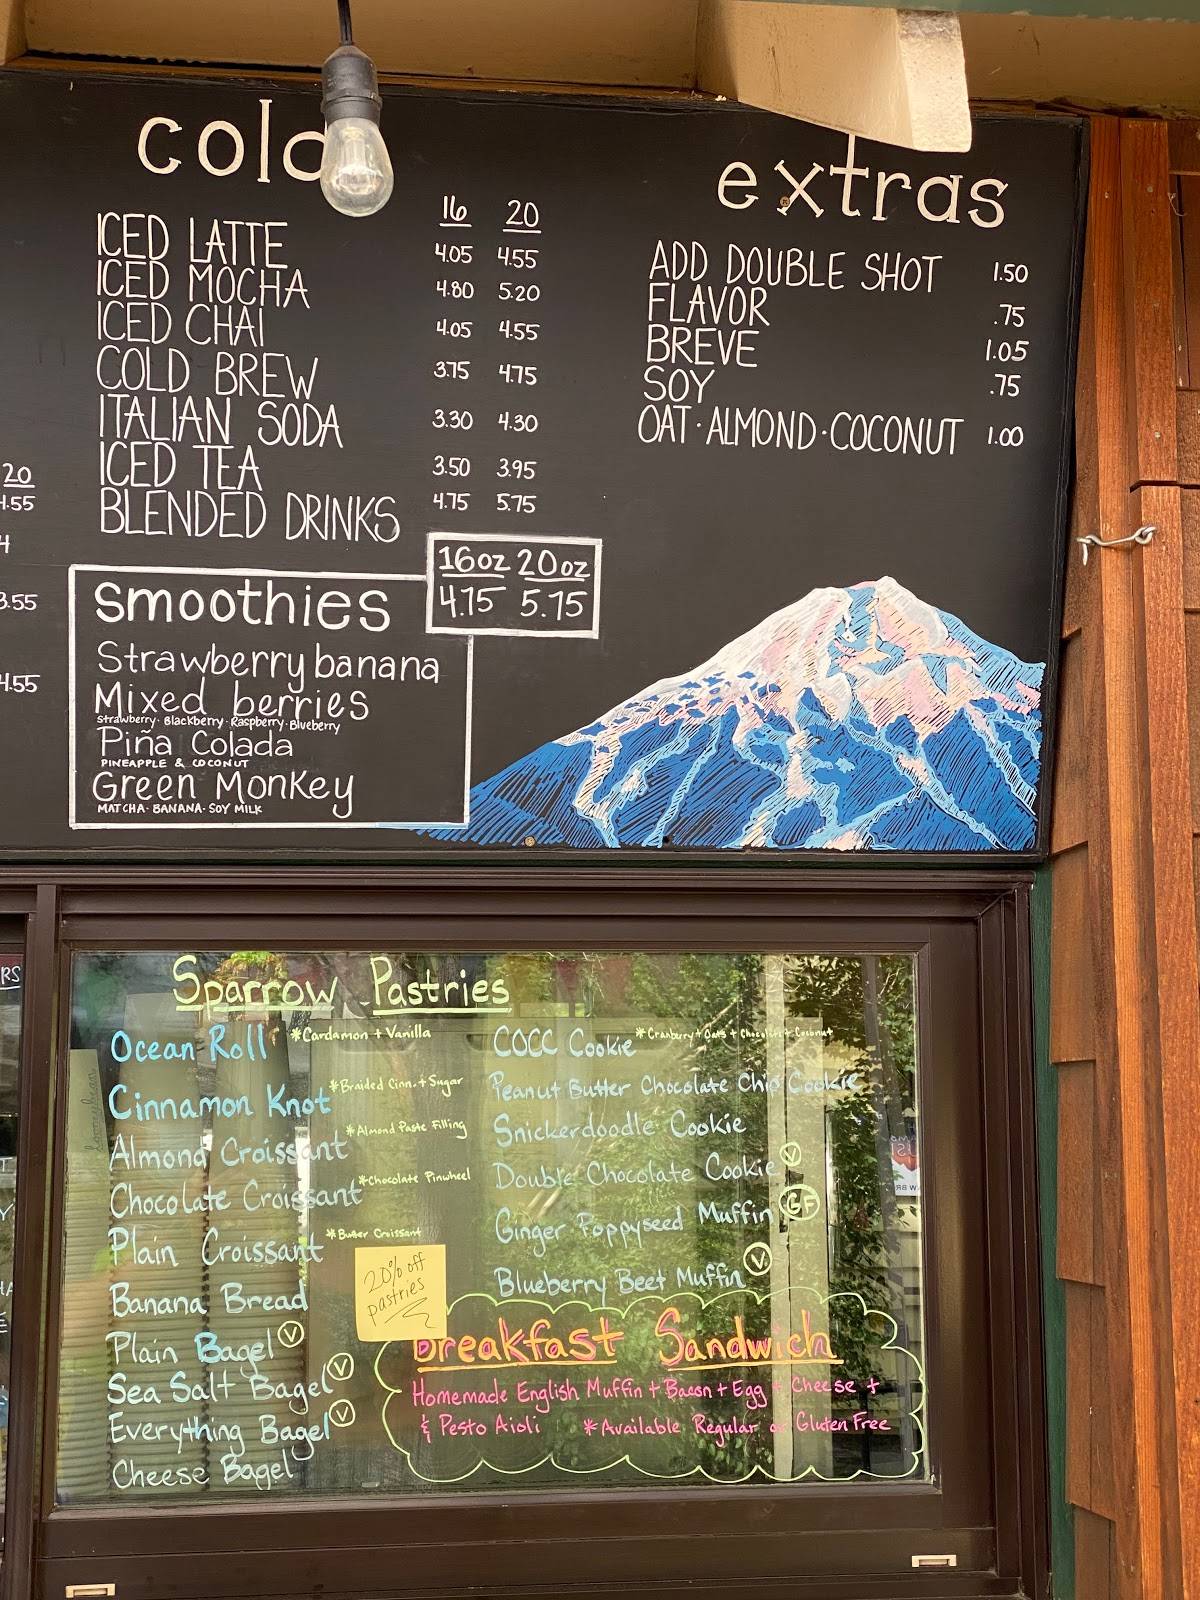 cold
16 20
ICED LATTE 4.05 4.55
ICED MOCHA 4.80 5.20
ICED CHAI 4.05 4.55
COLD BREW 3.75 4.75
ITALIAN SODA 3.30 4.30
ICED TEA 3.50 3.95
BLENDED DRINKS 4.75 5.75
extras
ADD DOUBLE SHOT 1.50
FLAVOR .75
BREVE 1.05
SOY .75
OAT·ALMOND·COCONUT 1.00
20
4.55
3.55
4.55
16oz 20oz
4.75 5.75
smoothies
Strawberry banana
Mixed berries
Strawberry·Blackberry·Raspberry·Blueberry
Piña Colada
PINEAPPLE & COCONUT
Green Monkey
MATCHA·BANANA·SOY MILK
Sparrow Pastries
Ocean Roll *Cardamon + Vanilla
Cinnamon Knot *Braided Cinn. + Sugar
Almond Croissant *Almond Paste Filling
Chocolate Croissant *Chocolate Pinwheel
Plain Croissant *Butter Croissant
Banana Bread
Plain Bagel V
Sea Salt Bagel V
Everything Bagel V
Cheese Bagel
COCC Cookie *Cranberry + Oats + Chocolate + Coconut
Peanut Butter Chocolate Chip Cookie
Snickerdoodle Cookie
Double Chocolate Cookie V
Ginger Poppyseed Muffin GF
Blueberry Beet Muffin V
20% off
pastries
Breakfast Sandwich
Homemade English Muffin + Bacon + Egg + Cheese +
& Pesto Aioli *Available Regular or Gluten Free